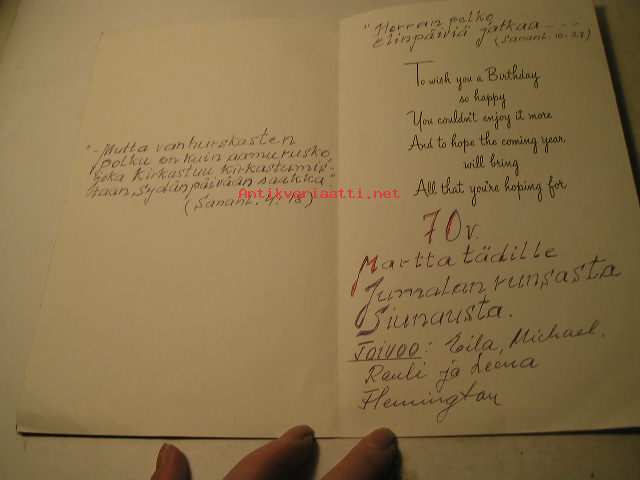 "-Mutta vanhurskasten
polku on kuin aamurusko
joka kirkastuu kirkastumis-
taan sydänpäivään saakka."
(Sananl. 4:18)
Antikvariaatti.net
"Herran pelko
elinpäiviä jatkaa - - -
(Sananl. 10:27)
To wish you a Birthday
so happy
You couldn't enjoy it more
And to hope the coming year
will bring
All that you're hoping for
70 v.
Martta tädille
Jumalan runsasta
Siunausta.
Toivoo: Eila, Michael,
Rauli ja Leena
Flemington